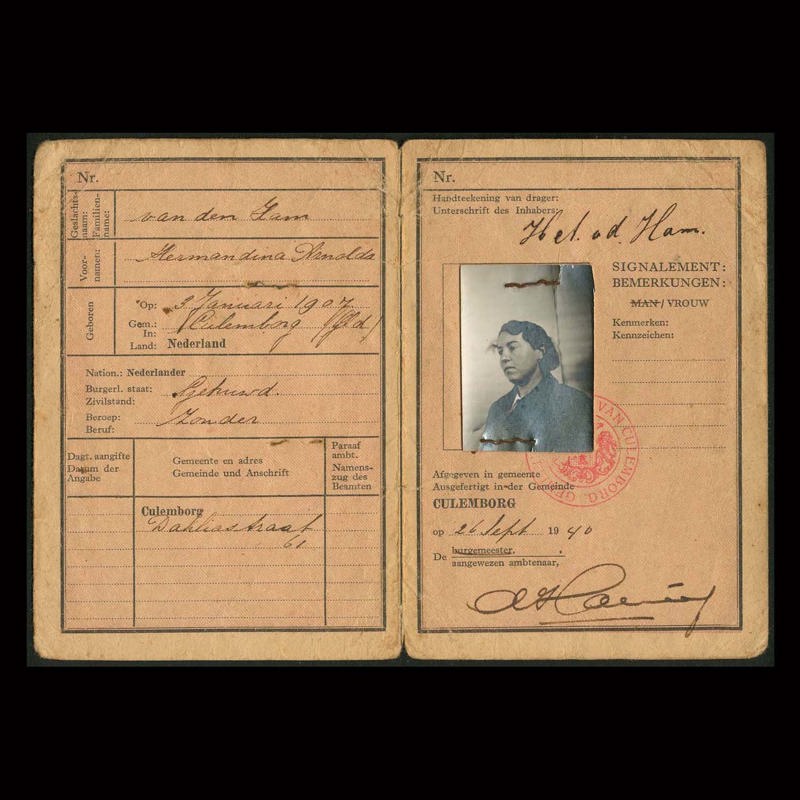 Nr.
Geslachts-
naam:
Familien-
name:
van den Ham
Voor-
namen:
Hermandina Arnolda
Geboren
Op: 3 Januari 1907
Gem.: Culemborg (Gld)
In:
Land: Nederland
Nation.: Nederlander
Burgerl. staat:
Zivilstand:
Gehuwd.
Beroep:
Beruf:
Zonder
Dagt. aangifte
Datum der
Angabe
Gemeente en adres
Gemeinde und Anschrift
Paraaf
ambt.
Namens-
zug des
Beamten
Culemborg
Dahliastraat
61
Nr.
Handteekening van drager:
Unterschrift des Inhabers:
v.d. Ham.
SIGNALEMENT:
BEMERKUNGEN:
MAN / VROUW
Kenmerken:
Kennzeichen:
VAN CULEMBORG
Afgegeven in gemeente
Ausgefertigt in der Gemeinde
CULEMBORG
op 26 Sept 1940
De burgemeester,
aangewezen ambtenaar,